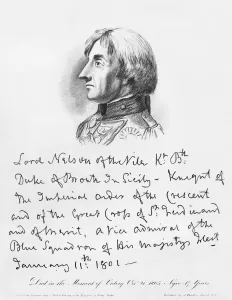 Lord Nelson of the Nile Kt. Bth.
Duke of Bronte In Sicily - Knight of
The Imperial order of the Crescent
and of the Great Cross of St. Ferdinand
and of merit, a vice admiral of the
Blue Squadron of His Majestys Fleet
January 11th: 1801 —
Died in the Moment of Victory Octr. 21. 1805